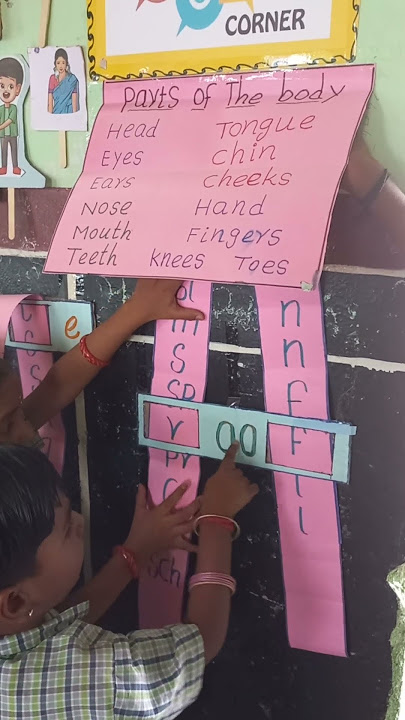 CORNER
Parts of The body
Head Tongue
Eyes chin
Ears cheeks
Nose Hand
Mouth Fingers
Teeth knees Toes
m n
s n
sp f
e
r oo f
pr l
l
sch